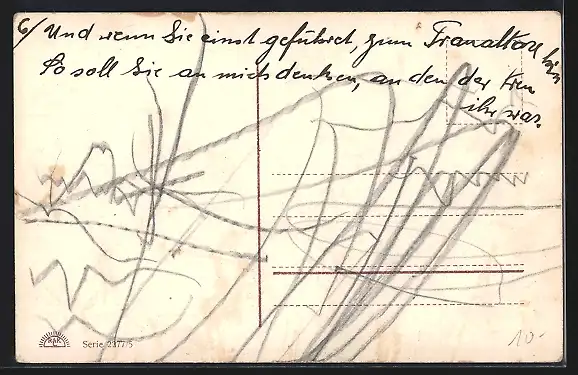 6/ Und wenn Sie einst geführet, zum Traualtare hin
So soll Sie an mich denken, an den der treu
ihr war.
Serie 2377/5
10-